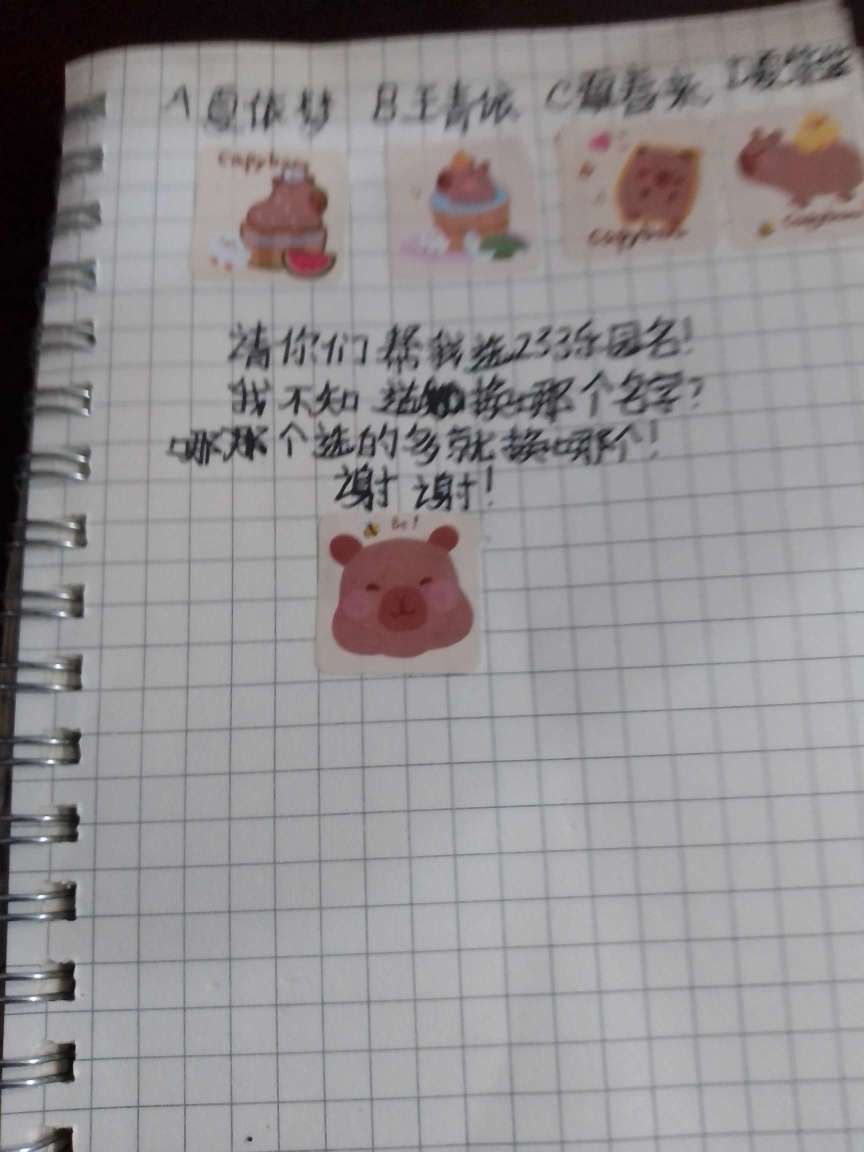 A 夏依梦 B 王青依 C
Capybara
Capybara
请你们帮我选233乐园名!
我不知道换哪个名字?
哪个选的多就换哪个!
谢谢!